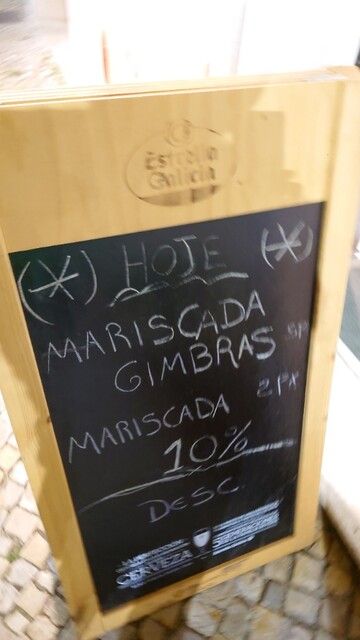 Estrella
Galicia
(*) HOJE (*)
MARISCADA
GIMBRAS SP
MARISCADA 2PX
10%
DESC.
CERVEZA